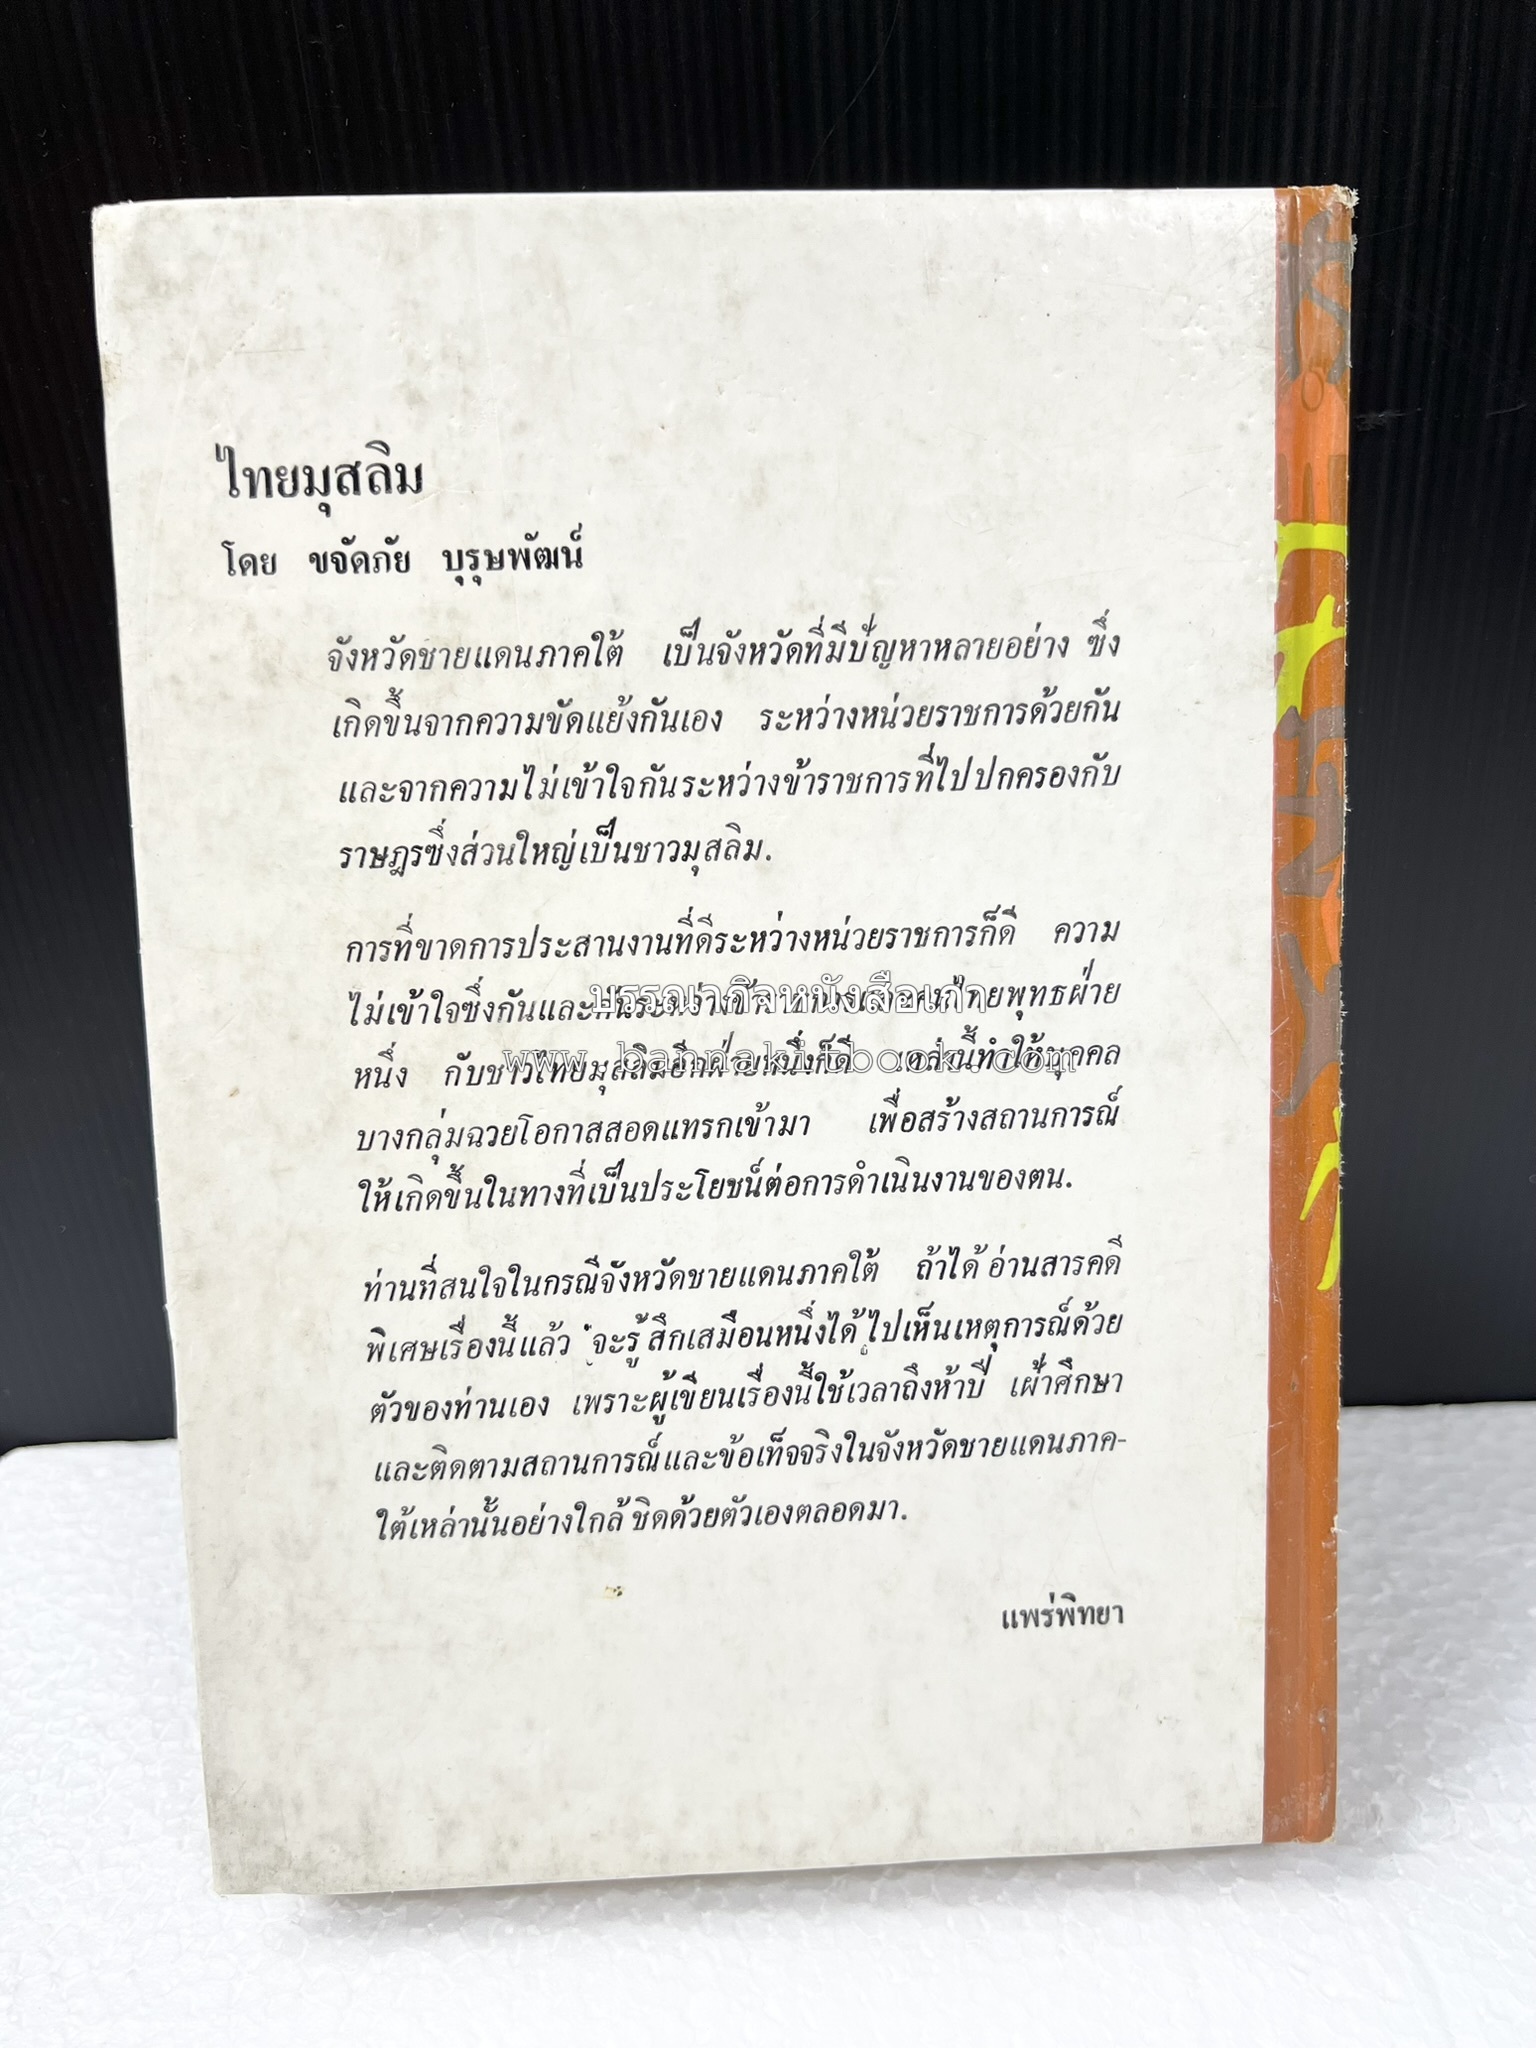 ไทยมุสลิม
โดย ขจัดภัย บุรุษพัฒน์
จังหวัดชายแดนภาคใต้ เป็นจังหวัดที่มีปัญหาหลายอย่าง ซึ่ง
เกิดขึ้นจากความขัดแย้งกันเอง ระหว่างหน่วยราชการด้วยกัน
และจากความไม่เข้าใจกันระหว่างข้าราชการที่ไปปกครองกับ
ราษฎรซึ่งส่วนใหญ่เป็นชาวมุสลิม.
การที่ขาดการประสานงานที่ดีระหว่างหน่วยราชการก็ดี ความ
ไม่เข้าใจซึ่งกันและกันระหว่าง ไทยพุทธฝ่าย
บรรณากิจหนังสือเก่า
หนึ่ง กับชาวไทยมุสลิมอีกฝ่ายหนึ่งก็ดี เหล่านี้ทำให้บุคคล
www.bannakitbook.com
บางกลุ่มฉวยโอกาสสอดแทรกเข้ามา เพื่อสร้างสถานการณ์
ให้เกิดขึ้นในทางที่เป็นประโยชน์ต่อการดำเนินงานของตน.
ท่านที่สนใจในกรณีจังหวัดชายแดนภาคใต้ ถ้าได้อ่านสารคดี
พิเศษเรื่องนี้แล้ว จะรู้สึกเสมือนหนึ่งได้ไปเห็นเหตุการณ์ด้วย
ตัวของท่านเอง เพราะผู้เขียนเรื่องนี้ใช้เวลาถึงห้าปี เฝ้าศึกษา
และติดตามสถานการณ์และข้อเท็จจริงในจังหวัดชายแดนภาค-
ใต้เหล่านั้นอย่างใกล้ชิดด้วยตัวเองตลอดมา.
แพร่พิทยา